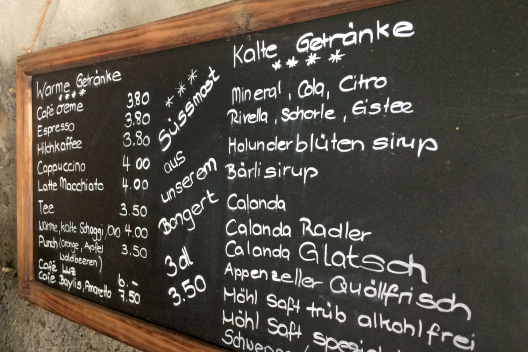 Warme Getränke
Café crème 380
Espresso 3.80
Milchkaffee 3.80
Cappuccino 4.00
Latte Macchiato 4.00
Tee 3.50
Warme, kalte Schoggi, Ovo 4.00
Punch (Orange, Apfel 3.50
Waldbeeren)
Café Luz 6.–
Café Baylis, Amaretto 7.50
Süssmost
aus
unserem
Bongert
3 dl
3.50
Kalte Getränke
Mineral, Cola, Citro
Rivella, Schorle, Eistee
Holunderblüten sirup
Bärlisirup
Calanda
Calanda Radler
Calanda Glatsch
Appenzeller Quöllfrisch
Möhl Saft trüb alkohlfrei
Möhl Saft